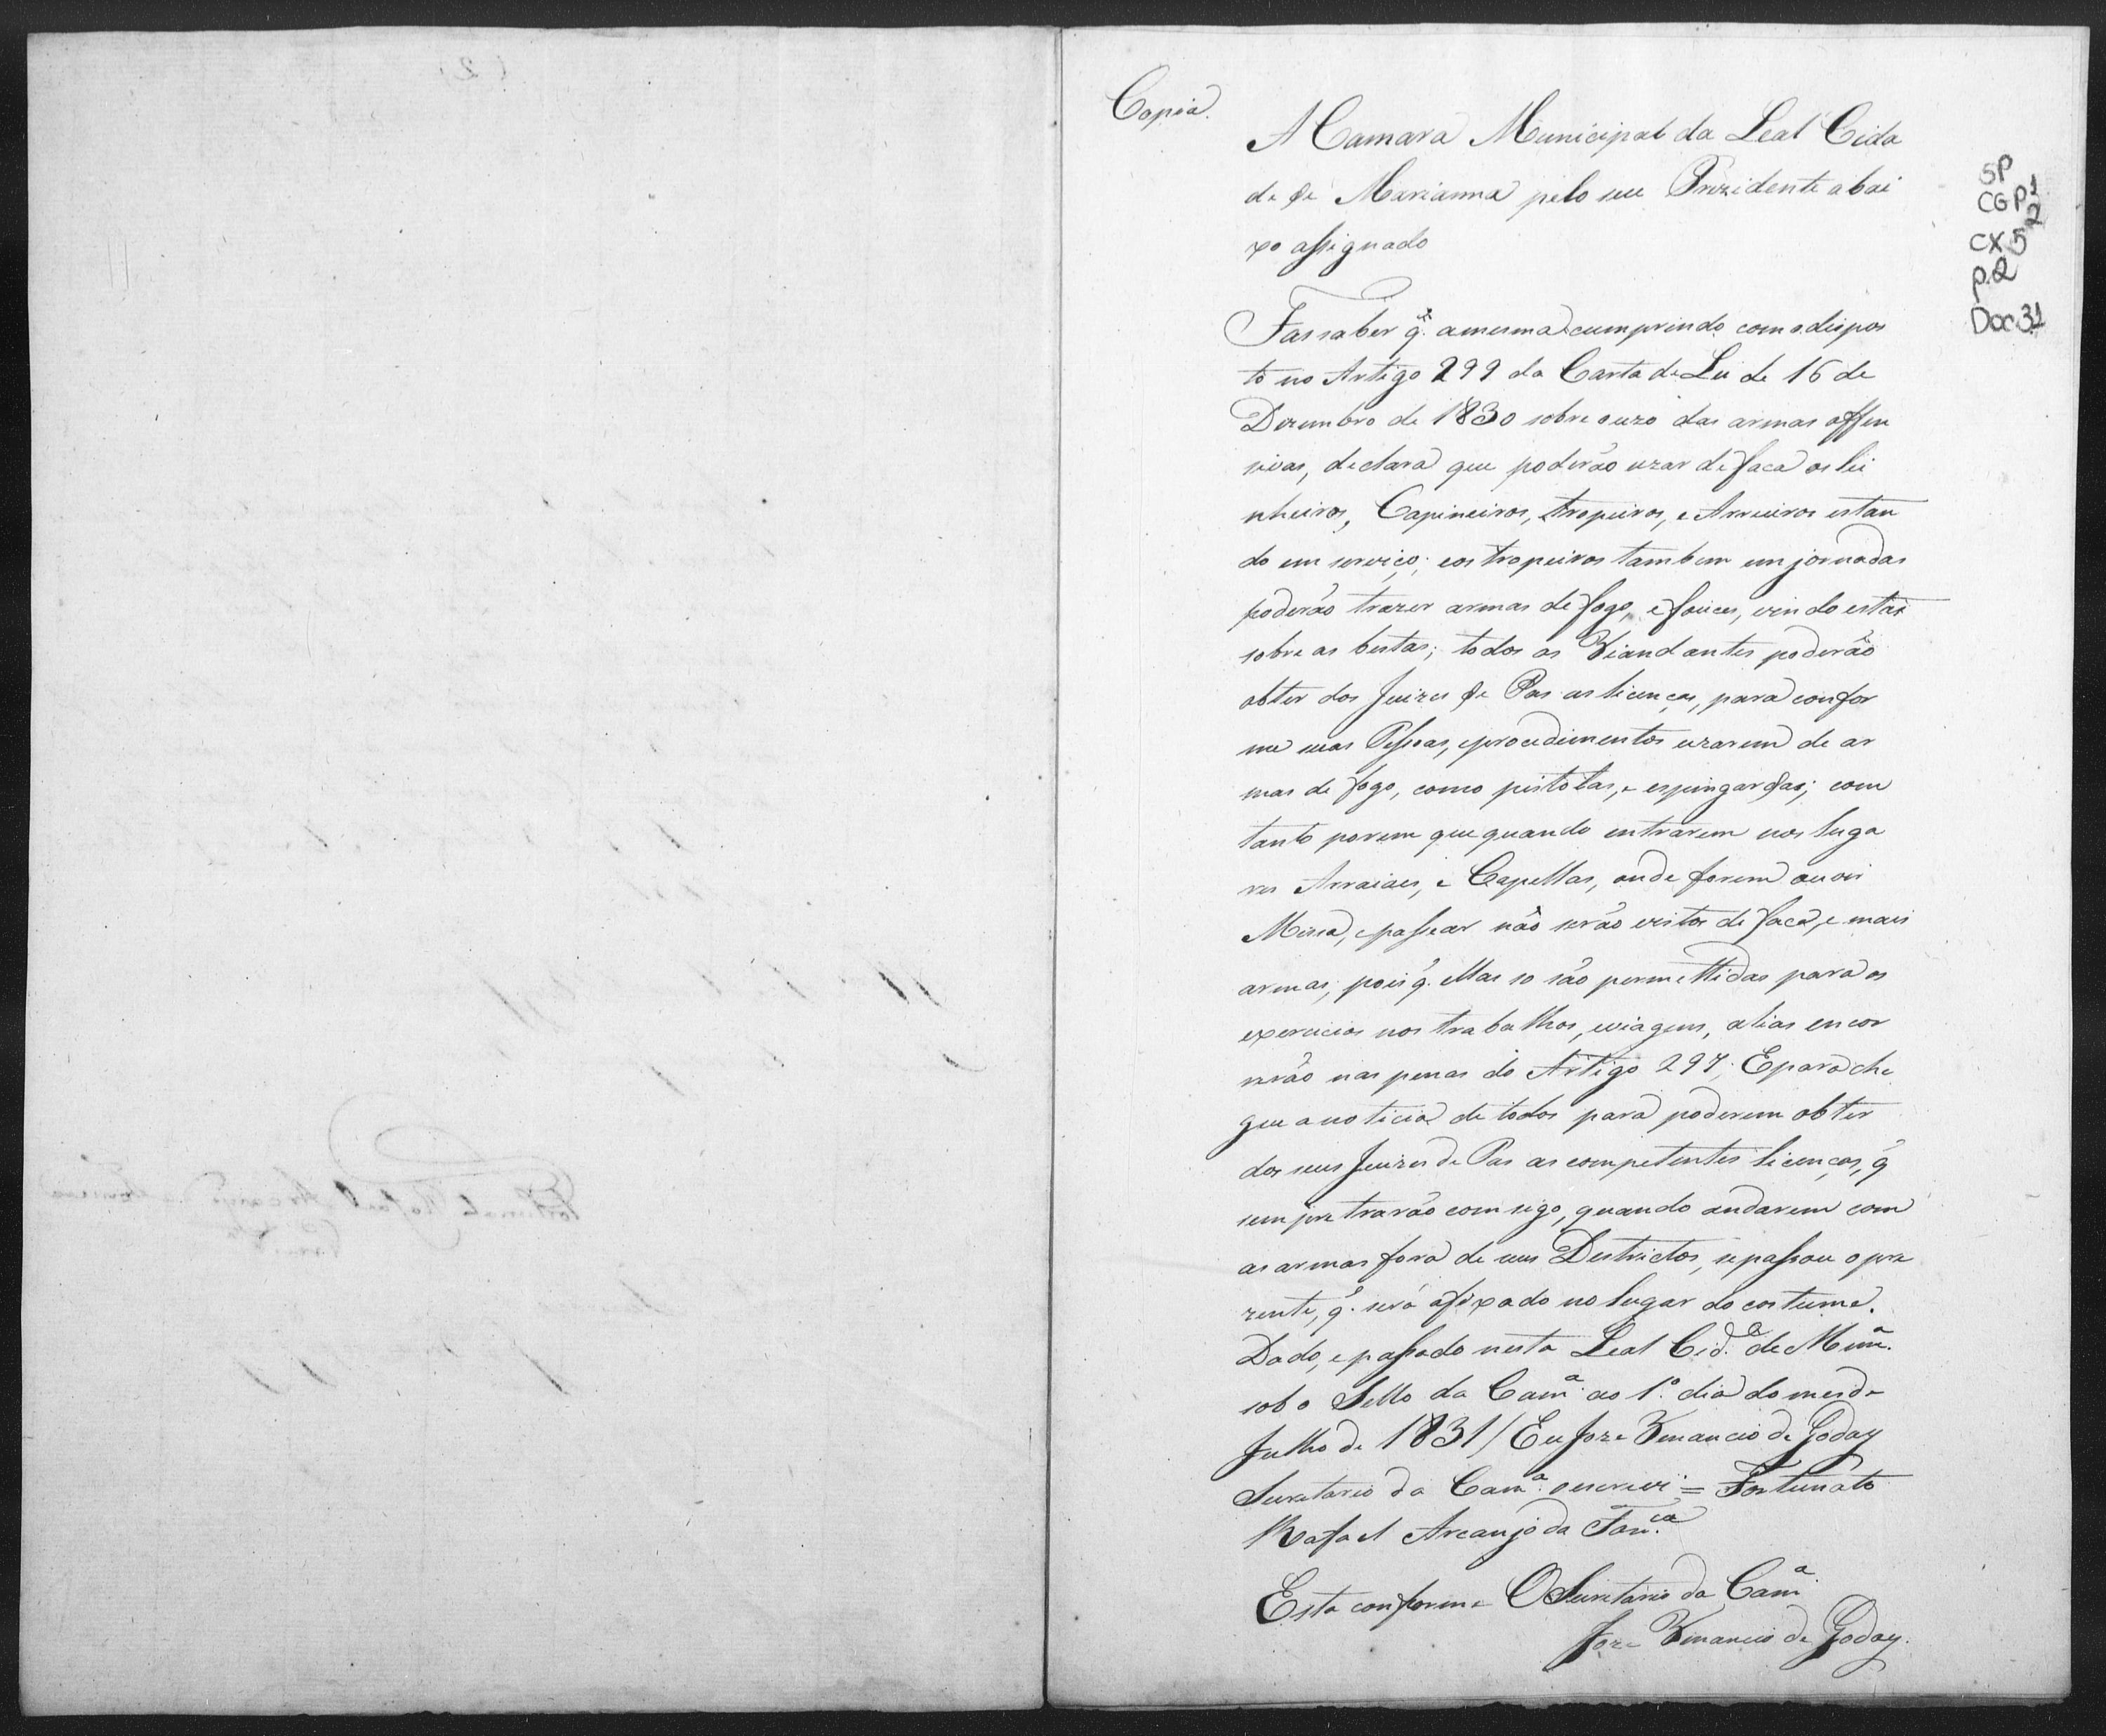 Copia.
A Camara Municipal da Leal Cida
de de Marianna pelo seu Prezidente abai
xo assignado
Fas saber q̃. a mesma cumprindo com o dispos
to no Artigo 299 da Carta de Lei de 16 de
Dezembro de 1830 sobre o uzo das armas offen
sivas, declara que poderão uzar de faca os lei
nheiros, Capineiros, tropeiros, e Arrieiros estan
do em serviço; e os tropeiros tambem em jornadas
poderão trazer armas de fogo, e fouces, vindo estas
sobre as bestas; todos os Viandantes poderão
obter dos Juizes de Pas as licenças, para confor
me suas Pessoas, e procedimentos uzarem de ar
mas de fogo, como pistolas, e espingardas; com
tanto porem que quando entrarem nos luga
res Arraiaes, e Capellas, onde forem ouvir
Missa, e passear não serão vistos de faca, e mais
armas, pois q̃. ellas so são permettidas para os
exercicios nos trabalhos, e viagens, alias encor
rerão nas penas do Artigo 297. E para che
gue a noticia de todos para poderem obter
dos seus Juizes de Pas as competentes licenças, q̃
sempre trarão comsigo, quando andarem com
as armas fora de seus Destrictos, se passou o pre
zente, q̃. será afixado no lugar do costume.
Dado, e passado nesta Leal Cid.e de Mnña.
sob o Sello da Cam.a ao 1.º dia do mes de
Julho de 1831 / Eu Joze Venancio de Godoy
Secretario da Cam.a o escrevi = Fortunato
Rafael Arcanjo da Fon.ca
Esta conforme O Secretario da Cam.a
Joze Venancio de Godoy.
SP
CGP1
2
CX5
p.2
Doc.31